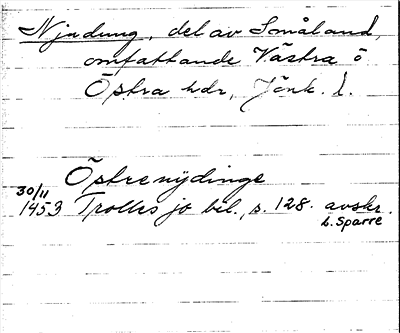 Njudung, del av Småland,
omfattande Västra o
Östra hdr, Jönk. l.
Östrenydinge
30/11
1453 Trolles jo bil., s. 128. avskr.
L. Sparre